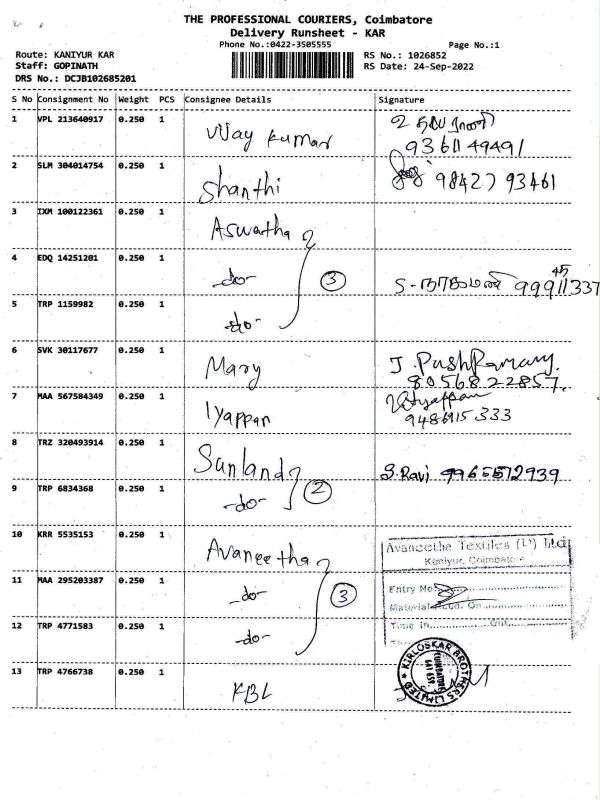 THE PROFESSIONAL COURIERS, Coimbatore
Delivery Runsheet - KAR
Phone No.:0422-3505555
Page No.:1
Route: KANIYUR KAR
RS No.: 1026852
Staff: GOPINATH
RS Date: 24-Sep-2022
DRS No.: DCJB102685201
S No Consignment No Weight PCS Consignee Details Signature
1 VPL 213640917 0.250 1 Vijay Kumar
9361149491
2 SLM 304014754 0.250 1 Shanthi 98427 93461
3 IXM 100122361 0.250 1 Aswatha
4 EDQ 14251201 0.250 1 -do- 3 S- நாகமணி
5 TRP 1159982 0.250 1 -do-
6 SVK 30117677 0.250 1 Mary J. PushPamary.
8056822857.
7 MAA 567584349 0.250 1 Iyappan
9486915333
8 TRZ 320493914 0.250 1 Sunland S. Ravi 9965572939
9 TRP 6834368 0.250 1 -do- 2
10 KRR 5535153 0.250 1 Avaneetha Avaneetha Textiles (P) Ltd
Kaniyur, Coimbatore
11 MAA 295203387 0.250 1 -do- 3 Entry No.
Material Recd. On
12 TRP 4771583 0.250 1 -do- Time In Out
13 TRP 4766738 0.250 1 KBL
KIRLOSKAR BROTHERS LIMITED
COIMBATORE
641 659